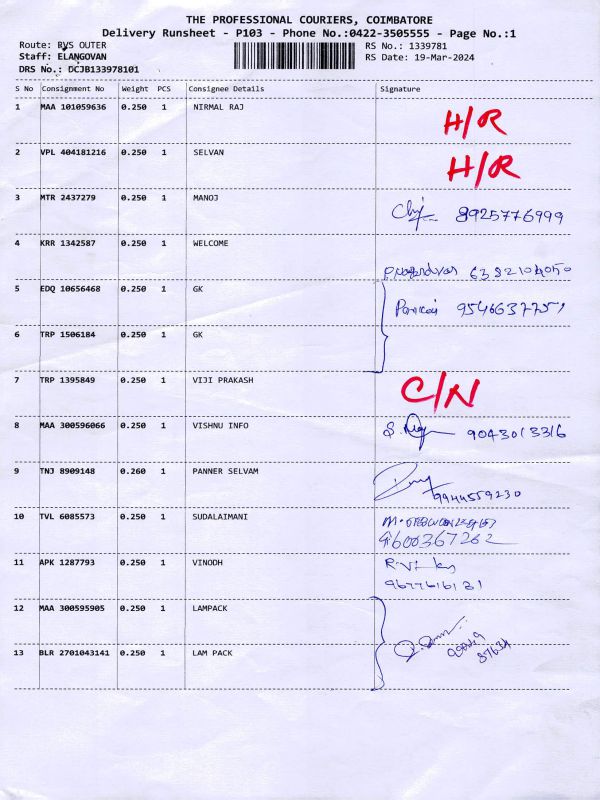 THE PROFESSIONAL COURIERS, COIMBATORE
Delivery Runsheet - P103 - Phone No.:0422-3505555 - Page No.:1
Route: BVS OUTER RS No.: 1339781
Staff: ELANGOVAN RS Date: 19-Mar-2024
DRS No.: DCJB133978101
S No Consignment No Weight PCS Consignee Details Signature
1 MAA 101059636 0.250 1 NIRMAL RAJ H/R
2 VPL 404181216 0.250 1 SELVAN H/R
3 MTR 2437279 0.250 1 MANOJ 8925776999
4 KRR 1342587 0.250 1 WELCOME
5 EDQ 10656468 0.250 1 GK
6 TRP 1506184 0.250 1 GK
7 TRP 1395849 0.250 1 VIJI PRAKASH C/N
8 MAA 300596066 0.250 1 VISHNU INFO 9043013316
9 TNJ 8909148 0.260 1 PANNER SELVAM 9944559230
10 TVL 6085573 0.250 1 SUDALAIMANI
9600367262
11 APK 1287793 0.250 1 VINODH
9677616131
12 MAA 300595905 0.250 1 LAMPACK
13 BLR 2701043141 0.250 1 LAM PACK